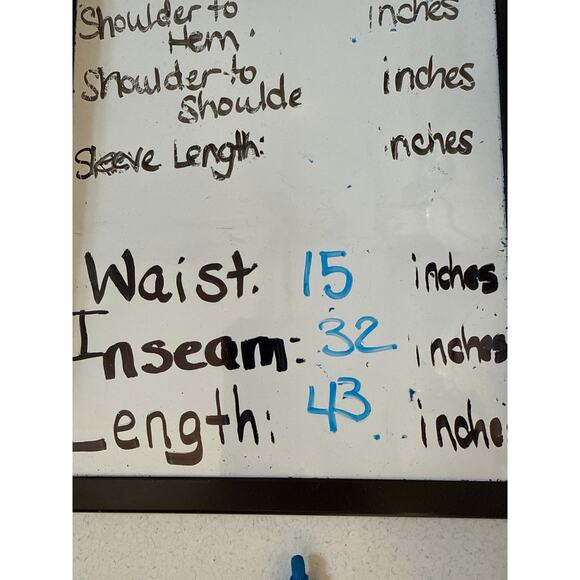 Shoulder to inches
Hem.
Shoulder to inches
Shoulde
Sleeve Length: nches
Waist: 15 inches
Inseam: 32 inches
Length: 43 inche